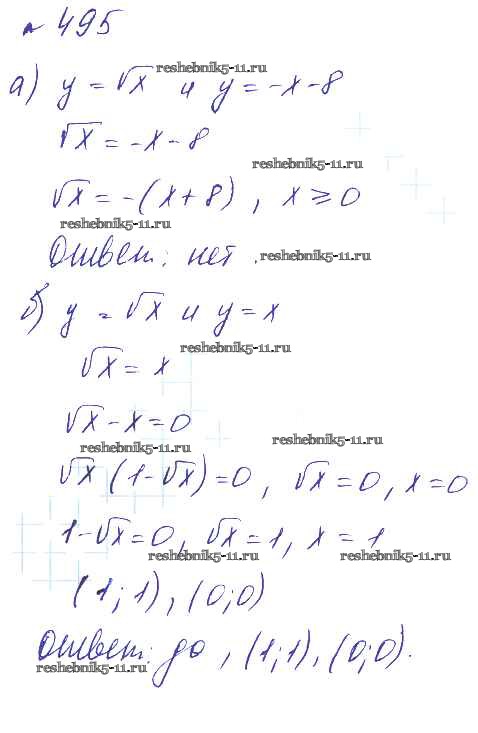 № 495
reshebnik5-11.ru
а) y = √x и y = -x - 8
√x = -x - 8
reshebnik5-11.ru
√x = -(x + 8), x ≥ 0
reshebnik5-11.ru
Ответ: нет. reshebnik5-11.ru
б) y = √x и y = x
reshebnik5-11.ru
√x = x
√x - x = 0
reshebnik5-11.ru reshebnik5-11.ru
√x (1 - √x) = 0, √x = 0, x = 0
1 - √x = 0, √x = 1, x = 1
reshebnik5-11.ru reshebnik5-11.ru
(1; 1), (0; 0)
Ответ: да, (1; 1), (0; 0).
reshebnik5-11.ru